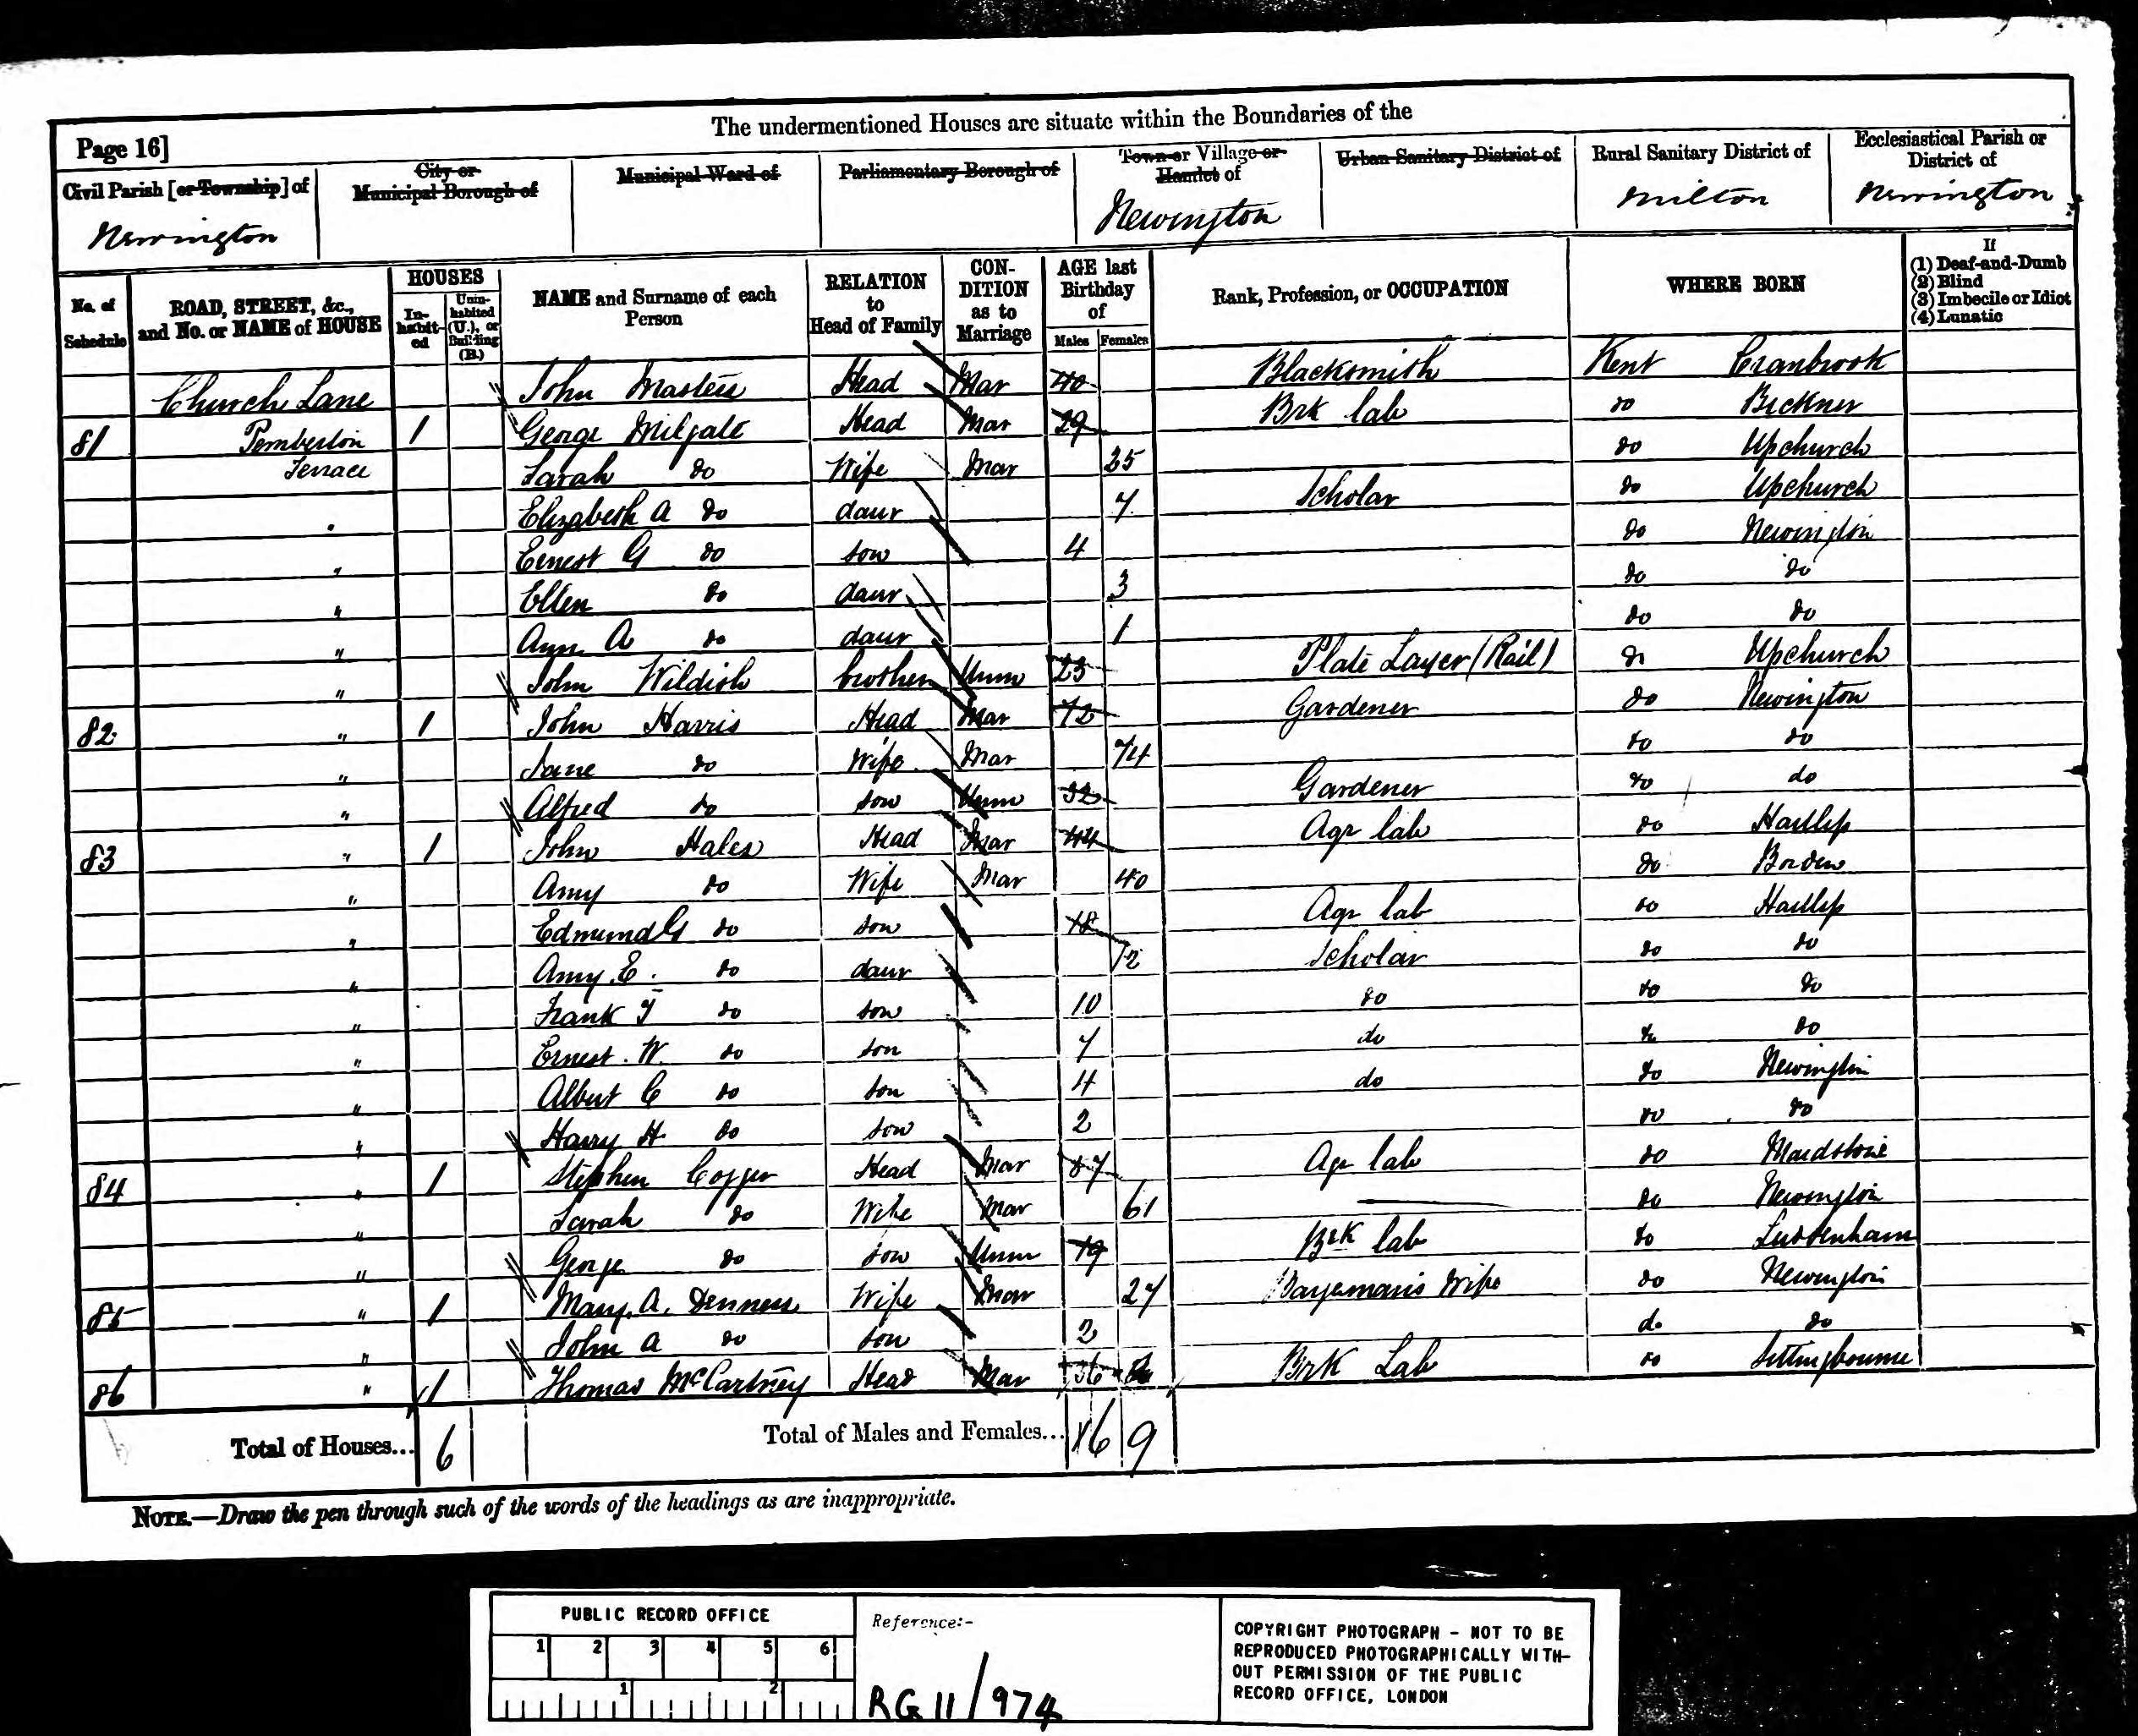 The undermentioned Houses are situate within the Boundaries of the
Page 16]
Civil Parish [or Township] of
Newington
City or Municipal Borough of
Municipal Ward of
Parliamentary Borough of
Town or Village or Hamlet of
Newington
Urban Sanitary District of
Rural Sanitary District of
Milton
Ecclesiastical Parish or District of
Newington
No. of Schedule
ROAD, STREET, &c., and No. or NAME of HOUSE
HOUSES
Inhabited
Uninhabited (U.), or Building (B.)
NAME and Surname of each Person
RELATION to Head of Family
CONDITION as to Marriage
AGE last Birthday of
Males Females
Rank, Profession, or OCCUPATION
WHERE BORN
If
(1) Deaf-and-Dumb
(2) Blind
(3) Imbecile or Idiot
(4) Lunatic
Church Lane John Masters Head Mar 40 Blacksmith Kent Cranbrook
81 Pemberton 1 George Milgate Head Mar 29 Brk lab do Bickner
Terrace Sarah do Wife Mar 25 do Upchurch
" Elizabeth A do daur 7 Scholar do Upchurch
" Ernest G do son 4 do Newington
" Ellen do daur 3 do do
" Ann A do daur 1 do do
" John Wildish brother Unm 23 Plate Layer (Rail) do Upchurch
82 " 1 John Harris Head Mar 72 Gardener do Newington
" Jane do Wife Mar 74 do do
" Alfred do son Unm 32 Gardener do do
83 " 1 John Hales Head Mar 44 Agr lab do Hartlip
" Amy do Wife Mar 40 do Borden
" Edmund G do son 18 Agr lab do Hartlip
" Amy E. do daur 12 Scholar do do
" Frank T do son 10 do do do
" Ernest W. do son 7 do do do
" Albert C do son 4 do do Newington
" Harry H do son 2 do do
84 " 1 Stephen Copper Head Mar Ag lab do Maidstone
" Sarah do Wife Mar 61 do Newington
" George do son Unm 19 Brk lab do Luddenham
85 " 1 Mary A. Denness Wife Mar 27 Bargemans Wife do Newington
" John A do son 2 do do
86 " 1 Thomas McCartney Head Mar 36 Brk Lab do Sittingbourne
Total of Houses... 6 Total of Males and Females... 16 9
NOTE.—Draw the pen through such of the words of the headings as are inappropriate.
PUBLIC RECORD OFFICE
1 2 3 4 5 6
1 2
Reference:-
RG 11/974
COPYRIGHT PHOTOGRAPH - NOT TO BE
REPRODUCED PHOTOGRAPHICALLY WITH-
OUT PERMISSION OF THE PUBLIC
RECORD OFFICE, LONDON